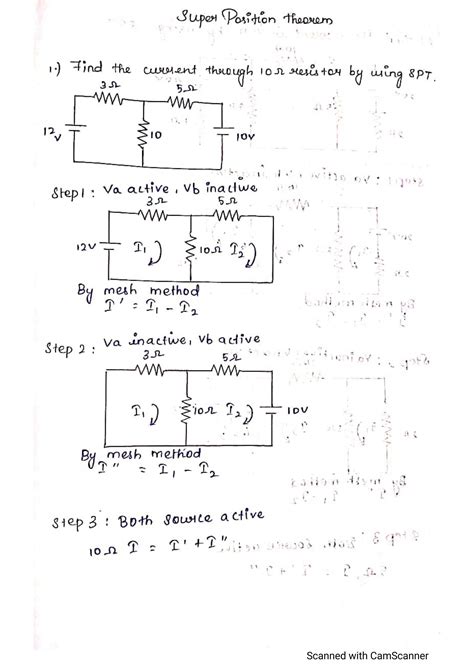 Super Position theorem
1.) Find the current through 10Ω resistor by using SPT.
3Ω 5Ω
12v 10 10V
Step 1 : Va active, Vb inactive
3Ω 5Ω
12V I₁ 10Ω I₂
By mesh method
I' = I₁ - I₂
Step 2 : Va inactive, Vb active
3Ω 5Ω
I₁ 10Ω I₂ 10V
By mesh method
I" = I₁ - I₂
Step 3 : Both source active
10Ω I = I' + I"
Scanned with CamScanner